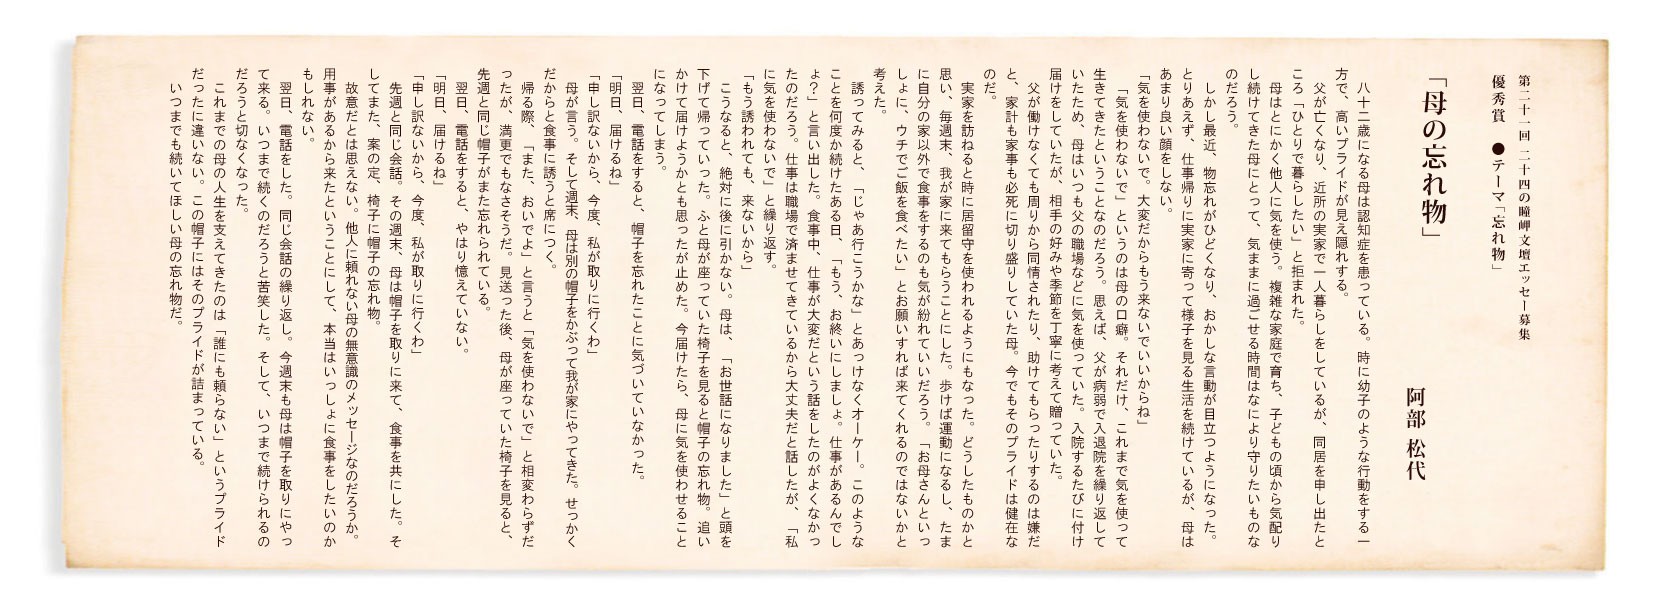 第二十一回 二十四の瞳岬文壇エッセー募集
優秀賞 ●テーマ「忘れ物」
「母の忘れ物」
阿部 松代
八十二歳になる母は認知症を患っている。時に幼子のような行動をする一
方で、高いプライドが見え隠れする。
父が亡くなり、近所の実家で一人暮らしをしているが、同居を申し出たと
ころ「ひとりで暮らしたい」と拒まれた。
母はとにかく他人に気を使う。複雑な家庭で育ち、子どもの頃から気配り
し続けてきた母にとって、気ままに過ごせる時間はなにより守りたいものな
のだろう。
しかし最近、物忘れがひどくなり、おかしな言動が目立つようになった。
とりあえず、仕事帰りに実家に寄って様子を見る生活を続けているが、母は
あまり良い顔をしない。
「気を使わないで。大変だからもう来ないでいいからね」
「気を使わないで」というのは母の口癖。それだけ、これまで気を使って
生きてきたということなのだろう。思えば、父が病弱で入退院を繰り返して
いたため、母はいつも父の職場などに気を使っていた。入院するたびに付け
届けをしていたが、相手の好みや季節を丁寧に考えて贈っていた。
父が働けなくても周りから同情されたり、助けてもらったりするのは嫌だ
と、家計も家事も必死に切り盛りしていた母。今でもそのプライドは健在な
のだ。
実家を訪ねると時に居留守を使われるようにもなった。どうしたものかと
思い、毎週末、我が家に来てもらうことにした。歩けば運動になるし、たま
に自分の家以外で食事をするのも気が紛れていいだろう。「お母さんといっ
しょに、ウチでご飯を食べたい」とお願いすれば来てくれるのではないかと
考えた。
誘ってみると、「じゃあ行こうかな」とあっけなくオーケー。このような
ことを何度か続けたある日、「もう、お終いにしましょ。仕事があるんでし
ょ？」と言い出した。食事中、仕事が大変だという話をしたのがよくなかっ
たのだろう。仕事は職場で済ませてきているから大丈夫だと話したが、「私
に気を使わないで」と繰り返す。
「もう誘われても、来ないから」
こうなると、絶対に後に引かない。母は、「お世話になりました」と頭を
下げて帰っていった。ふと母が座っていた椅子を見ると帽子の忘れ物。追い
かけて届けようかとも思ったが止めた。今届けたら、母に気を使わせること
になってしまう。
翌日、電話をすると、帽子を忘れたことに気づいていなかった。
「明日、届けるね」
「申し訳ないから、今度、私が取りに行くわ」
母が言う。そして週末、母は別の帽子をかぶって我が家にやってきた。せっかく
だからと食事に誘うと席につく。
帰る際、「また、おいでよ」と言うと「気を使わないで」と相変わらずだ
ったが、満更でもなさそうだ。見送った後、母が座っていた椅子を見ると、
先週と同じ帽子がまた忘れられている。
翌日、電話をすると、やはり憶えていない。
「明日、届けるね」
「申し訳ないから、今度、私が取りに行くわ」
先週と同じ会話。その週末、母は帽子を取りに来て、食事を共にした。そ
してまた、案の定、椅子に帽子の忘れ物。
故意だとは思えない。他人に頼れない母の無意識のメッセージなのだろうか。
用事があるから来たということにして、本当はいっしょに食事をしたいのか
もしれない。
翌日、電話をした。同じ会話の繰り返し。今週末も母は帽子を取りにやっ
て来る。いつまで続くのだろうと苦笑した。そして、いつまで続けられるの
だろうと切なくなった。
これまでの母の人生を支えてきたのは「誰にも頼らない」というプライド
だったに違いない。この帽子にはそのプライドが詰まっている。
いつまでも続いてほしい母の忘れ物だ。